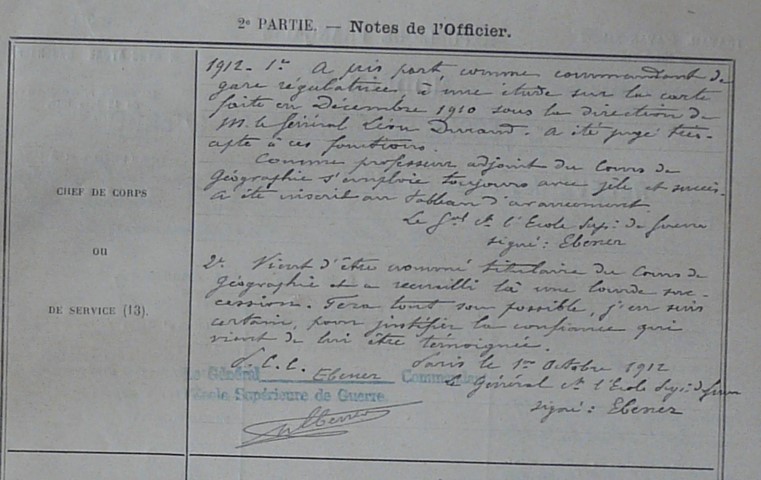 2e PARTIE. — Notes de l'Officier.
CHEF DE CORPS
ou
DE SERVICE (13).
1912 - 1er A pris part comme commandant de
gare régulatrice à une étude sur la carte
faite en Décembre 1910 sous la direction de
M. le Général Léon Durand. A été jugé très-
apte à ces fonctions.
Comme professeur adjoint du Cours de
Géographie s'emploie toujours avec zèle et succès.
A été inscrit au Tableau d'avancement.
Le Gral Ct l'Ecole Supre de Guerre
signé : Ebener
2e Vient d'être nommé titulaire du Cours de
Géographie et a recueilli là une lourde suc-
cession. Fera tout son possible, j'en suis
certain, pour justifier la confiance qui
vient de lui être témoignée.
P. C. C. Paris le 1er Octobre 1912
Le Général Ebener Commandant Le Général Ct l'Ecole Supre de Guerre
l'Ecole Supérieure de Guerre.
signé : Ebener
Ebener